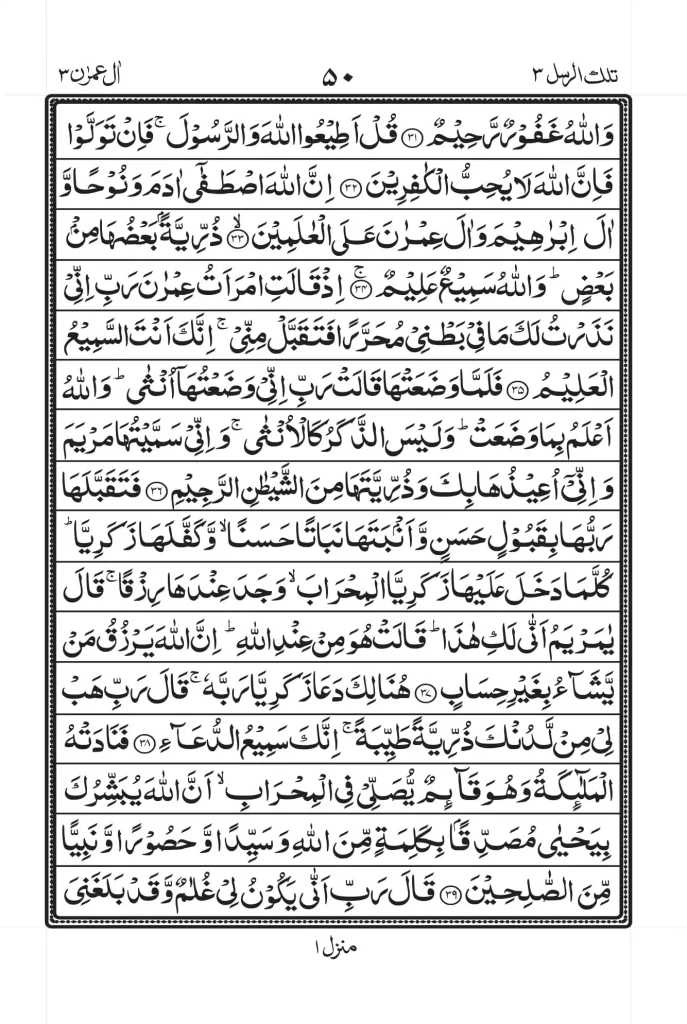 تلك الرسل ٣ ٥٠ اٰل عمرٰن ٣
وَاللّٰهُ غَفُوْرٌ رَّحِيْمٌ ﴿۳۱﴾ قُلْ اَطِيْعُوا اللّٰهَ وَالرَّسُوْلَ ۚ فَاِنْ تَوَلَّوْا
فَاِنَّ اللّٰهَ لَا يُحِبُّ الْكٰفِرِيْنَ ﴿۳۲﴾ اِنَّ اللّٰهَ اصْطَفٰٓى اٰدَمَ وَنُوْحًا وَّ
اٰلَ اِبْرٰهِيْمَ وَاٰلَ عِمْرٰنَ عَلَى الْعٰلَمِيْنَ ۙ﴿۳۳﴾ ذُرِّيَّةًۢ بَعْضُهَا مِنْۢ
بَعْضٍ ؕ وَاللّٰهُ سَمِيْعٌ عَلِيْمٌ ۚ﴿۳۴﴾ اِذْ قَالَتِ امْرَاَتُ عِمْرٰنَ رَبِّ اِنِّىْ
نَذَرْتُ لَكَ مَا فِىْ بَطْنِىْ مُحَرَّرًا فَتَقَبَّلْ مِنِّىْ ۚ اِنَّكَ اَنْتَ السَّمِيْعُ
الْعَلِيْمُ ﴿۳۵﴾ فَلَمَّا وَضَعَتْهَا قَالَتْ رَبِّ اِنِّىْ وَضَعْتُهَاۤ اُنْثٰى ؕ وَاللّٰهُ
اَعْلَمُ بِمَا وَضَعَتْ ؕ وَلَيْسَ الذَّكَرُ كَالْاُنْثٰى ۚ وَاِنِّىْ سَمَّيْتُهَا مَرْيَمَ
وَاِنِّىْۤ اُعِيْذُهَا بِكَ وَذُرِّيَّتَهَا مِنَ الشَّيْطٰنِ الرَّجِيْمِ ﴿۳۶﴾ فَتَقَبَّلَهَا
رَبُّهَا بِقَبُوْلٍ حَسَنٍ وَّاَنْۢبَتَهَا نَبَاتًا حَسَنًا ۙ وَّكَفَّلَهَا زَكَرِيَّا ؕ
كُلَّمَا دَخَلَ عَلَيْهَا زَكَرِيَّا الْمِحْرَابَ ۙ وَجَدَ عِنْدَهَا رِزْقًا ۚ قَالَ
يٰمَرْيَمُ اَنّٰى لَكِ هٰذَا ؕ قَالَتْ هُوَ مِنْ عِنْدِ اللّٰهِ ؕ اِنَّ اللّٰهَ يَرْزُقُ مَنْ
يَّشَآءُ بِغَيْرِ حِسَابٍ ﴿۳۷﴾ هُنَالِكَ دَعَا زَكَرِيَّا رَبَّهٗ ۚ قَالَ رَبِّ هَبْ
لِىْ مِنْ لَّدُنْكَ ذُرِّيَّةً طَيِّبَةً ۚ اِنَّكَ سَمِيْعُ الدُّعَآءِ ﴿۳۸﴾ فَنَادَتْهُ
الْمَلٰٓئِكَةُ وَهُوَ قَآئِمٌ يُّصَلِّىْ فِى الْمِحْرَابِ ۙ اَنَّ اللّٰهَ يُبَشِّرُكَ
بِيَحْيٰى مُصَدِّقًۢا بِكَلِمَةٍ مِّنَ اللّٰهِ وَسَيِّدًا وَّحَصُوْرًا وَّنَبِيًّا
مِّنَ الصّٰلِحِيْنَ ﴿۳۹﴾ قَالَ رَبِّ اَنّٰى يَكُوْنُ لِىْ غُلٰمٌ وَّقَدْ بَلَغَنِىَ
منزل ١